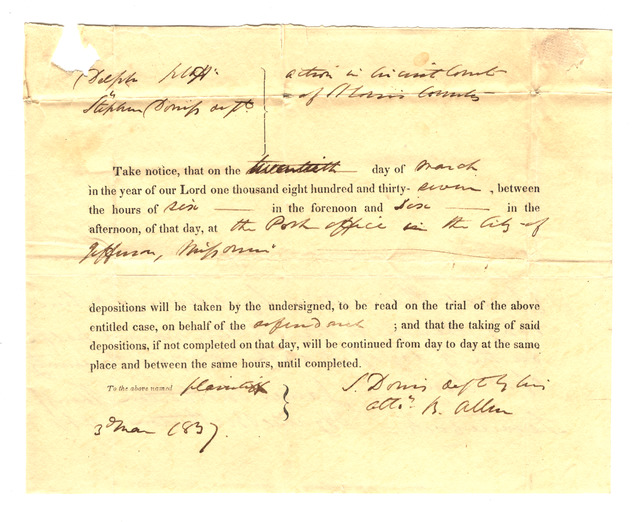 Delph plaff.
Stephen Dorriss deft.
action in Circuit Court
of St Louis County
Take notice, that on the twentieth day of March
in the year of our Lord one thousand eight hundred and thirty-seven, between
the hours of six in the forenoon and six in the
afternoon, of that day, at the Post office in the City of
Jefferson, Missouri
depositions will be taken by the undersigned, to be read on the trial of the above
entitled case, on behalf of the defendant ; and that the taking of said
depositions, if not completed on that day, will be continued from day to day at the same
place and between the same hours, until completed.
To the above named plaintiff
S. Dorris deft by his
atto. B. Allen
3d Mar 1837.